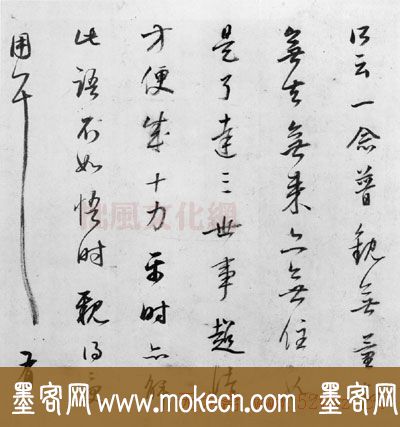 云一念普觀無量
無去無來亦無住
是了達三世事超諸
方便成十力
此語不如悟時親得
風文化網
墨客网 www.mokecn.com 墨客网